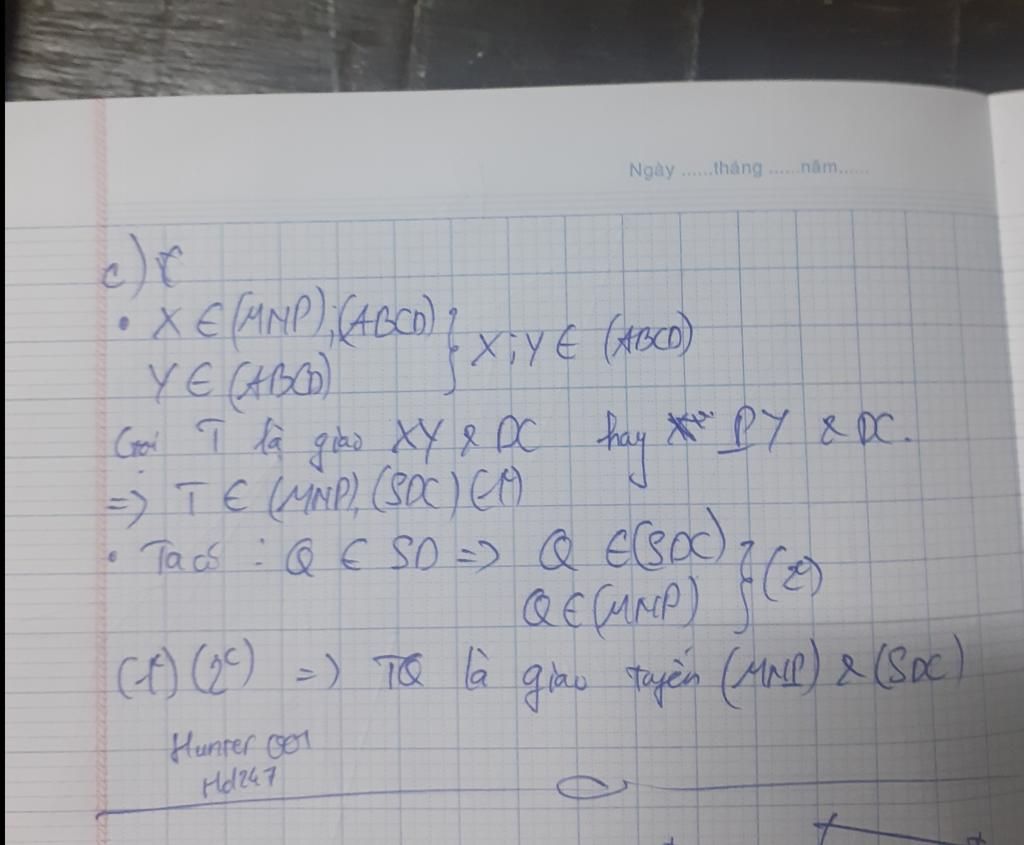 Ngày ......tháng ......năm......
c)
• X ∈ (MNP), (ABCD) } X; Y ∈ (ABCD)
Y ∈ (ABCD)
Gọi T là giao XY & DC hay PY & DC.
=> T ∈ (MNP), (SDC) (1)
• Ta có : Q ∈ SD => Q ∈ (SDC) } (2)
Q ∈ (MNP)
(1) (2) => TQ là giao tuyến (MNP) & (SDC)
Hunter 001
Hd247